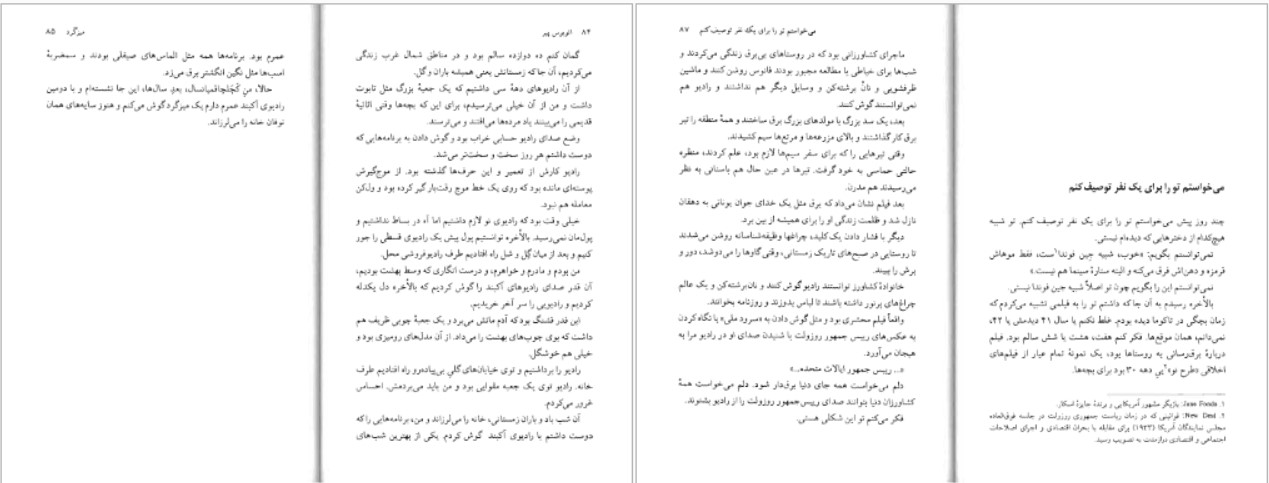 ۸۴ اتوبوس پیر
گمان کنم ده دوازده سالم بود و در مناطق شمال غرب زندگی
می‌کردیم، آن جا که زمستانش یعنی همیشه باران و گل.
از آن رادیوهای دههٔ سی داشتیم که یک جعبهٔ بزرگ مثل تابوت
داشت و من از آن خیلی می‌ترسیدم، برای این که بچه‌ها وقتی اثاثیهٔ
قدیمی را می‌بینند یاد مرده‌ها می‌افتند و می‌ترسند.
وضع صدای رادیو حسابی خراب بود و گوش دادن به برنامه‌هایی که
دوست داشتم هر روز سخت و سخت‌تر می‌شد.
رادیو کارش از تعمیر و این حرف‌ها گذشته بود. از موج‌گیرش
پوسته‌ای مانده بود که روی یک خط موج رقت‌بار گیر کرده بود و ول‌کن
معامله هم نبود.
خیلی وقت بود که رادیوی نو لازم داشتیم اما آه در بساط نداشتیم و
پول‌مان نمی‌رسید. بالأخره توانستیم پول پیش یک رادیوی قسطی را جور
کنیم و بعد از میان گِل و شل راه افتادیم طرف رادیوفروشی محل.
من بودم و مادرم و خواهرم، و درست انگاری که وسط بهشت بودیم،
آن قدر صدای رادیوهای آکبند را گوش کردیم که بالأخره دل یکدله
کردیم و رادیویی را سر آخر خریدیم.
این قدر قشنگ بود که آدم ماتش می‌برد و یک جعبهٔ چوبی ظریف هم
داشت که بوی چوب‌های بهشت را می‌داد. از آن مدل‌های رومیزی بود و
خیلی هم خوشگل.
رادیو را برداشتیم و توی خیابان‌های گلیِ بی‌پیاده‌رو راه افتادیم طرف
خانه. رادیو توی یک جعبه مقوایی بود و من باید می‌بردمش. احساس
غرور می‌کردم.
آن شب باد و باران زمستانی، خانه را می‌لرزاند و من، برنامه‌هایی را که
دوست داشتم با رادیوی آکبند گوش کردم. یکی از بهترین شب‌های
میزگرد ۸۵
عمرم بود. برنامه‌ها همه مثل الماس‌های صیقلی بودند و سم‌ضربهٔ
اسب‌ها مثل نگین انگشتر برق می‌زد.
حالا، منِ میانسال، بعدِ سال‌ها، این جا نشسته‌ام و با دومین
رادیوی آکبند عمرم دارم یک میزگرد گوش می‌کنم و هنوز سایه‌های همان
توفان خانه را می‌لرزاند.
می‌خواستم تو را برای یک نفر توصیف کنم
چند روز پیش می‌خواستم تو را برای یک نفر توصیف کنم. تو شبیه
هیچ‌کدام از دخترهایی که دیده‌ام نیستی.
نمی‌توانستم بگویم: «خوب، شبیه جین فوندا۱ست، فقط موهاش
قرمزه و دهن‌اش فرق می‌کنه و البته ستارهٔ سینما هم نیست.»
نمی‌توانستم این را بگویم چون تو اصلاً شبیه جین فوندا نیستی.
بالأخره رسیدم به آن جا که داشتم تو را به فیلمی تشبیه می‌کردم که
زمان بچگی در تاکوما دیده بودم. غلط نکنم یا سال ۴۱ دیدمش یا ۴۲،
نمی‌دانم، همان موقع‌ها. فکر کنم هفت، هشت یا شش سالم بود. فیلم
دربارهٔ برق‌رسانی به روستاها بود، یک نمونهٔ تمام عیار از فیلم‌های
اخلاقی «طرح نو»۲یِ دهه ۳۰ بود برای بچه‌ها.
۱. Jane Fonda: بازیگر مشهور آمریکایی و برندهٔ جایزهٔ اسکار.
۲. New Deal: قوانینی که در زمان ریاست جمهوری روزولت در جلسه فوق‌العاده
مجلس نمایندگان آمریکا (۱۹۳۳) برای مقابله با بحران اقتصادی و اجرای اصلاحات
اجتماعی و اقتصادی درازمدت به تصویب رسید.
می‌خواستم تو را برای یک نفر توصیف کنم ۸۷
ماجرای کشاورزانی بود که در روستاهای بی‌برق زندگی می‌کردند و
شب‌ها برای خیاطی یا مطالعه مجبور بودند فانوس روشن کنند و ماشین
ظرفشویی و نان برشته‌کن و وسایل دیگر هم نداشتند و رادیو هم
نمی‌توانستند گوش کنند.
بعد، یک سد بزرگ با مولدهای بزرگ برق ساختند و همهٔ منطقه را تیر
برق کار گذاشتند و بالای مزرعه‌ها و مرتع‌ها سیم کشیدند.
وقتی تیرهایی را که برای سفر سیم‌ها لازم بود، علم کردند، منظره
حالتی حماسی به خود گرفت. تیرها در عین حال هم باستانی به نظر
می‌رسیدند هم مدرن.
بعد فیلم نشان می‌داد که برق مثل یک خدای جوان یونانی به دهقان
نازل شد و ظلمت زندگی او را برای همیشه از بین برد.
دیگر با فشار دادن یک کلید، چراغها وظیفه‌شناسانه روشن می‌شدند
تا روستایی در صبح‌های تاریک زمستانی، وقتی گاوها را می‌دوشد، دور و
برش را ببیند.
خانوادهٔ کشاورز توانستند رادیو گوش کنند و نان‌برشته‌کن و یک عالم
چراغ‌های پرنور داشته باشند تا لباس بدوزند و روزنامه بخوانند.
واقعاً فیلم محشری بود و مثل گوش دادن به «سرود ملی» یا نگاه کردن
به عکس‌های رییس جمهور روزولت یا شنیدن صدای او در رادیو مرا به
هیجان می‌آورد.
«.. رییس جمهور ایالات متحده..»
دلم می‌خواست همه جای دنیا برق‌دار شود. دلم می‌خواست همهٔ
کشاورزان دنیا بتوانند صدای رییس‌جمهور روزولت را از رادیو بشنوند.
فکر می‌کنم تو این شکلی هستی.